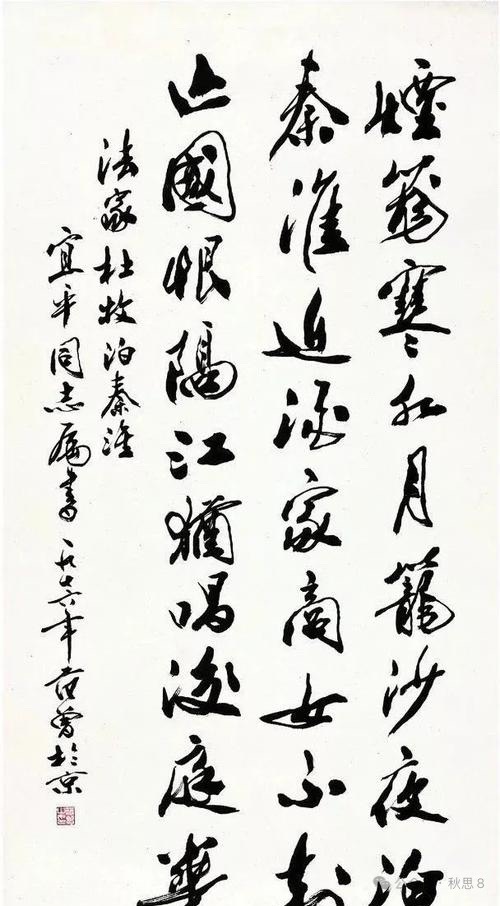 煙籠寒水月籠沙夜泊
秦淮近酒家商女不知
亡國恨隔江猶唱後庭華
法家杜牧泊秦淮
宜平同志属書一九七六年范曾於京
公众号 · 秋思8